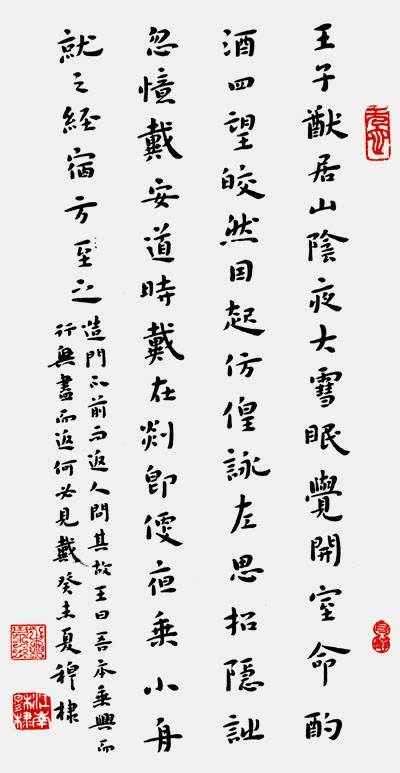 王子猷居山陰夜大雪眠覺開室命酌
酒四望皎然因起仿偟詠左思招隱詩
忽憶戴安道時戴在剡即便夜乘小舟
就之經宿方至之
造門不前而返人問其故王曰吾本乘興而
行無盡而返何必見戴癸未夏穆棣
江南穆棣